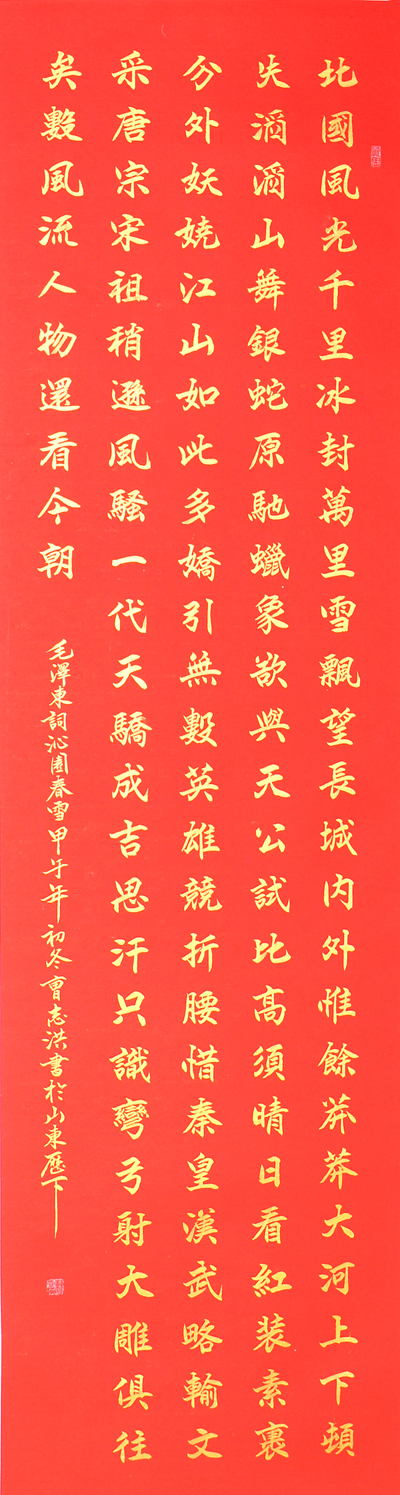 北國風光千里冰封萬里雪飄望長城内外惟餘莽莽大河上下頓
失滔滔山舞銀蛇原馳蠟象欲與天公試比高須晴日看紅装素裹
分外妖嬈江山如此多嬌引無數英雄競折腰惜秦皇漢武略輸文
采唐宗宋祖稍遜風騷一代天驕成吉思汗只識彎弓射大雕俱往
矣數風流人物還看今朝
毛澤東詞沁園春雪甲午年初冬曹志洪書於山東歷下